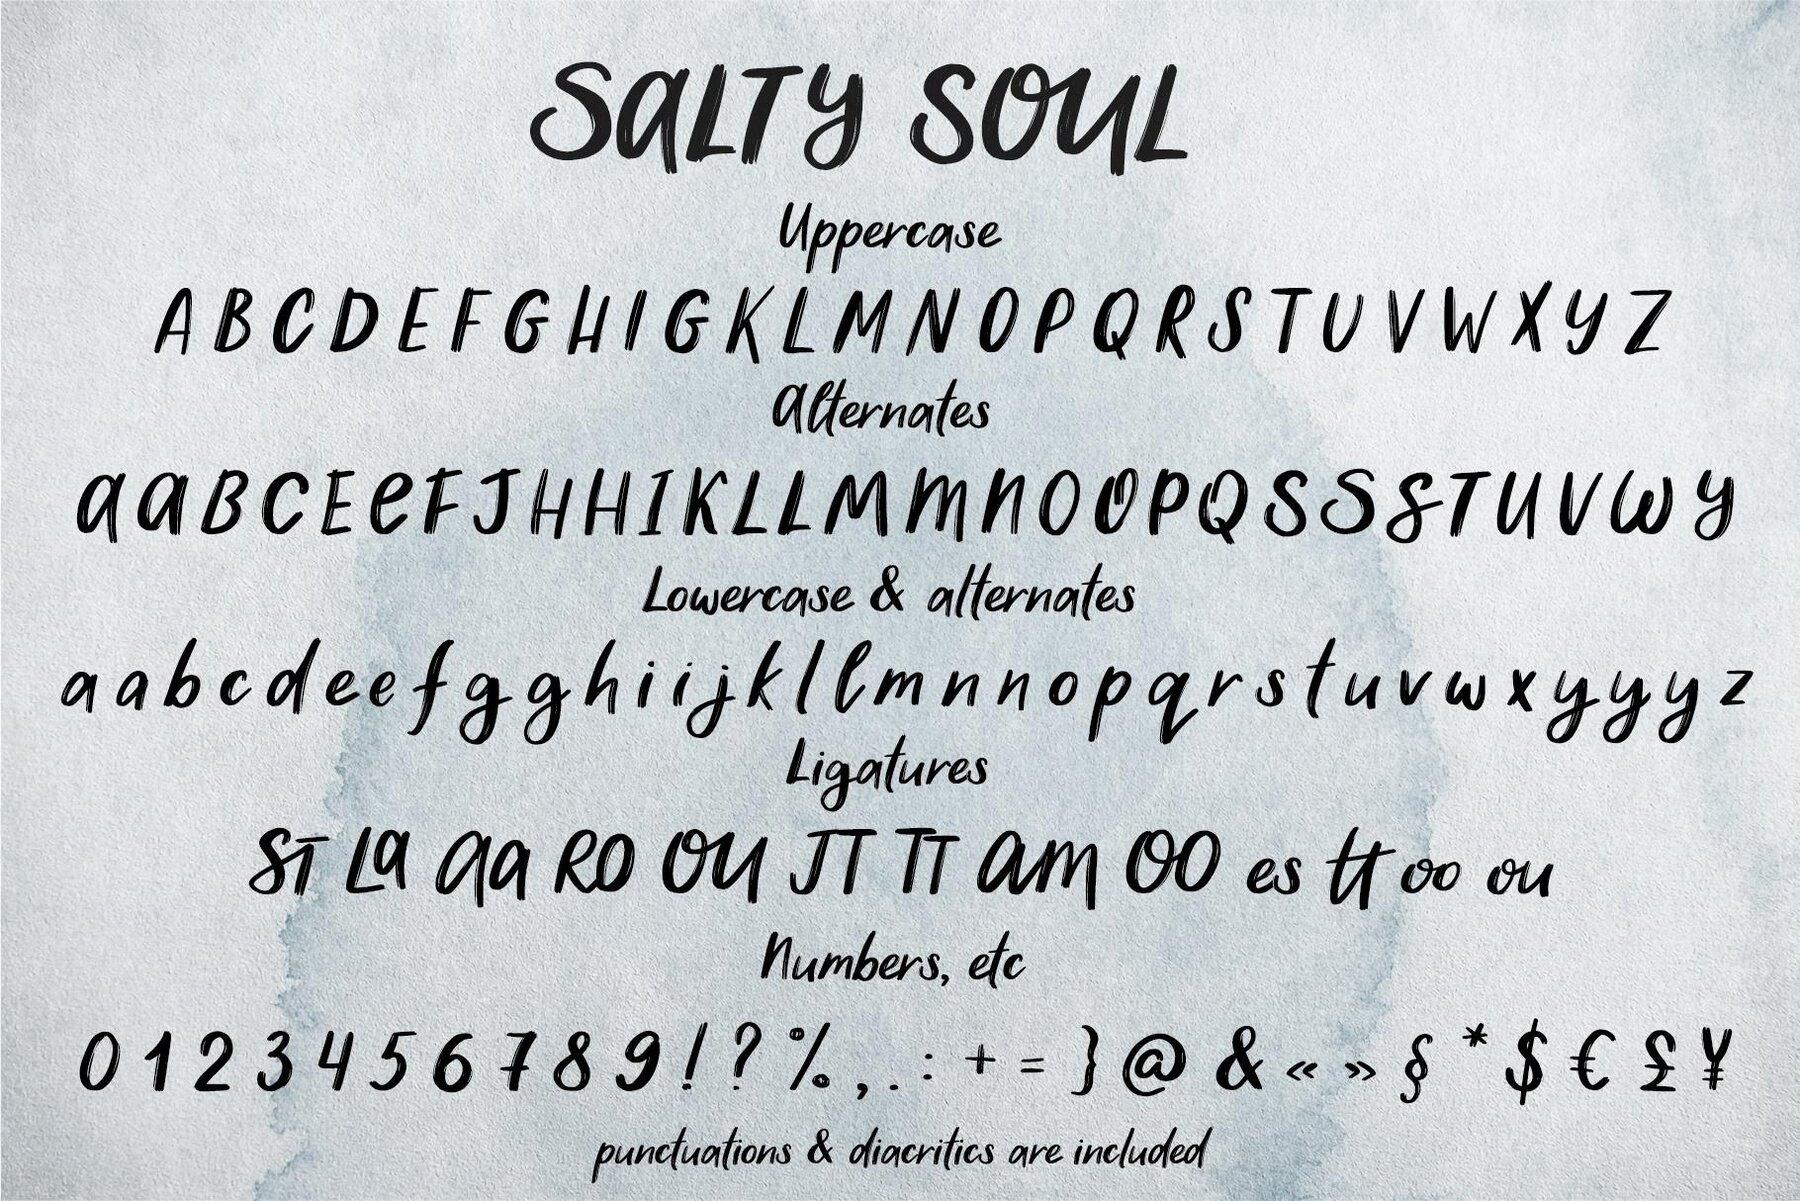 SALTY SOUL
Uppercase
A B C D E F G H I G K L M N O P Q R S T U V W X Y Z
Alternates
a a B C E e F J H H I K L L M m n O O P Q S S S T U V W y
Lowercase & alternates
a a b c d e e f g g h i i j k l l m n n o p q r s t u v w x y y y z
Ligatures
ST LA aa RO OU JT TT am OO es tt oo ou
Numbers, etc
0 1 2 3 4 5 6 7 8 9 ! ? % , . : + = } @ & « » § * $ € £ ¥
punctuations & diacritics are included